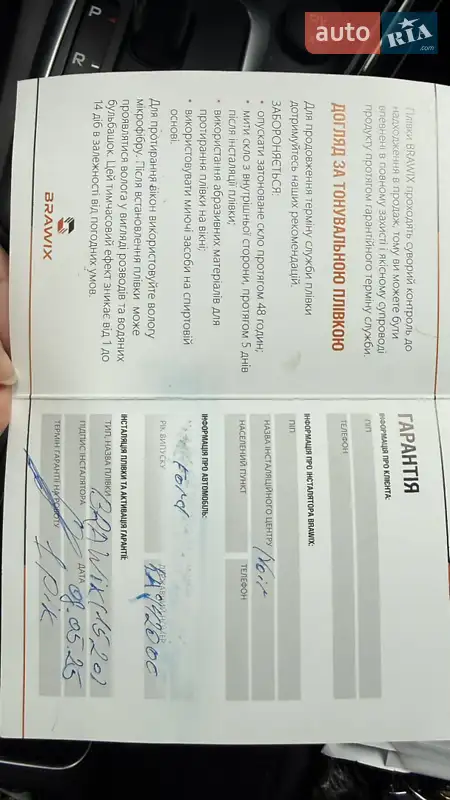 auto RIA.com
P
R
Плівки BRAWIX проходять суворий контроль до
надходження в продаж, тому ви можете бути
впевнені в повному захисті і якісному супроводі
продукту протягом гарантійного терміну служби.
ДОГЛЯД ЗА ТОНУВАЛЬНОЮ ПЛІВКОЮ
Для продовження терміну служби плівки
дотримуйтесь наших рекомендацій.
ЗАБОРОНЯЄТЬСЯ:
• опускати затоноване скло протягом 48 годин;
• мити скло з внутрішньої сторони, протягом 5 днів
після інсталяції плівки;
• використання абразивних матеріалів для
протирання плівки на вікні;
• використовувати миючі засоби на спиртовій
основі.
Для протирання вікон використовуйте вологу
мікрофібру. Після встановлення плівки може
проявлятися волога у вигляді розводів та водяних
бульбашок. Цей тимчасовий ефект зникає від 1 до
14 діб в залежності від погодних умов.
BRAWIX
ГАРАНТІЯ
ІНФОРМАЦІЯ ПРО КЛІЄНТА:
ПІП
ТЕЛЕФОН
ІНФОРМАЦІЯ ПРО ІНСТАЛЯТОРА BRAWIX:
ПІП
НАЗВА ІНСТАЛЯЦІЙНОГО ЦЕНТРУ
НАСЕЛЕНИЙ ПУНКТ ТЕЛЕФОН
ІНФОРМАЦІЯ ПРО АВТОМОБІЛЬ:
Ford
РІК ВИПУСКУ
ІНСТАЛЯЦІЯ ПЛІВКИ ТА АКТИВАЦІЯ ГАРАНТІЇ:
ТИП, НАЗВА ПЛІВКИ BRAWIX (1520)
ПІДПИС ІНСТАЛЯТОРА ДАТА 08.05.25
ТЕРМІН ГАРАНТІЇ НА РОБОТУ 1 рік